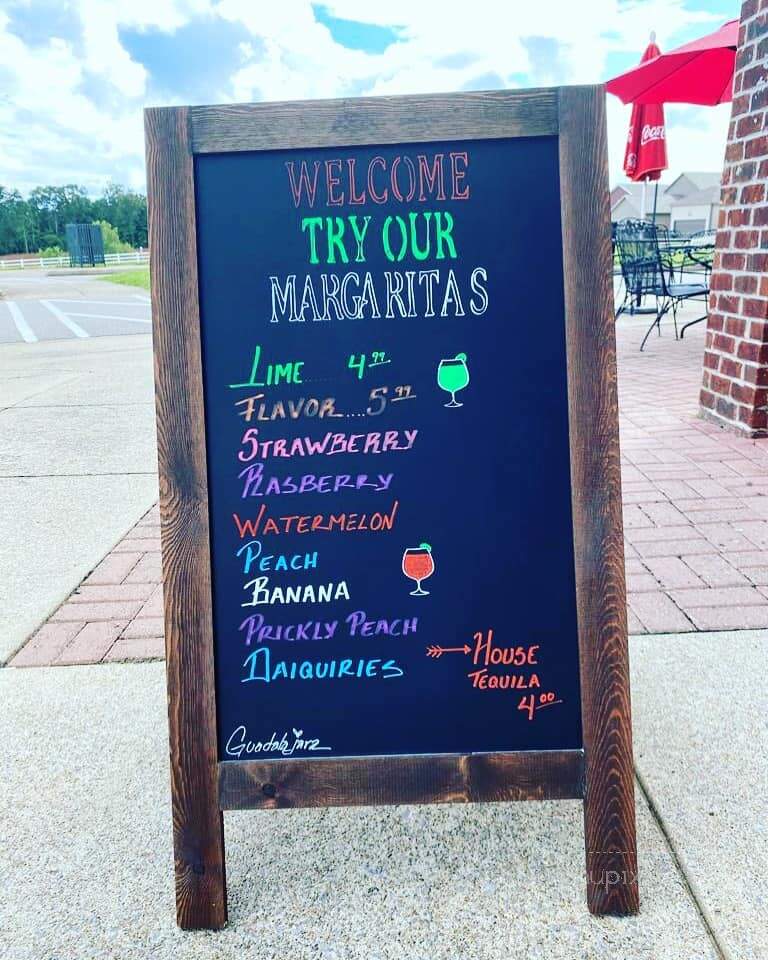 WELCOME
TRY OUR
MARGARITAS
LIME ..... 4.99
FLAVOR....5.99
STRAWBERRY
RASBERRY
WATERMELON
PEACH
BANANA
PRICKLY PEACH
DAIQUIRIES
HOUSE
TEQUILA
4.00
Guadalajara
Coca-Cola